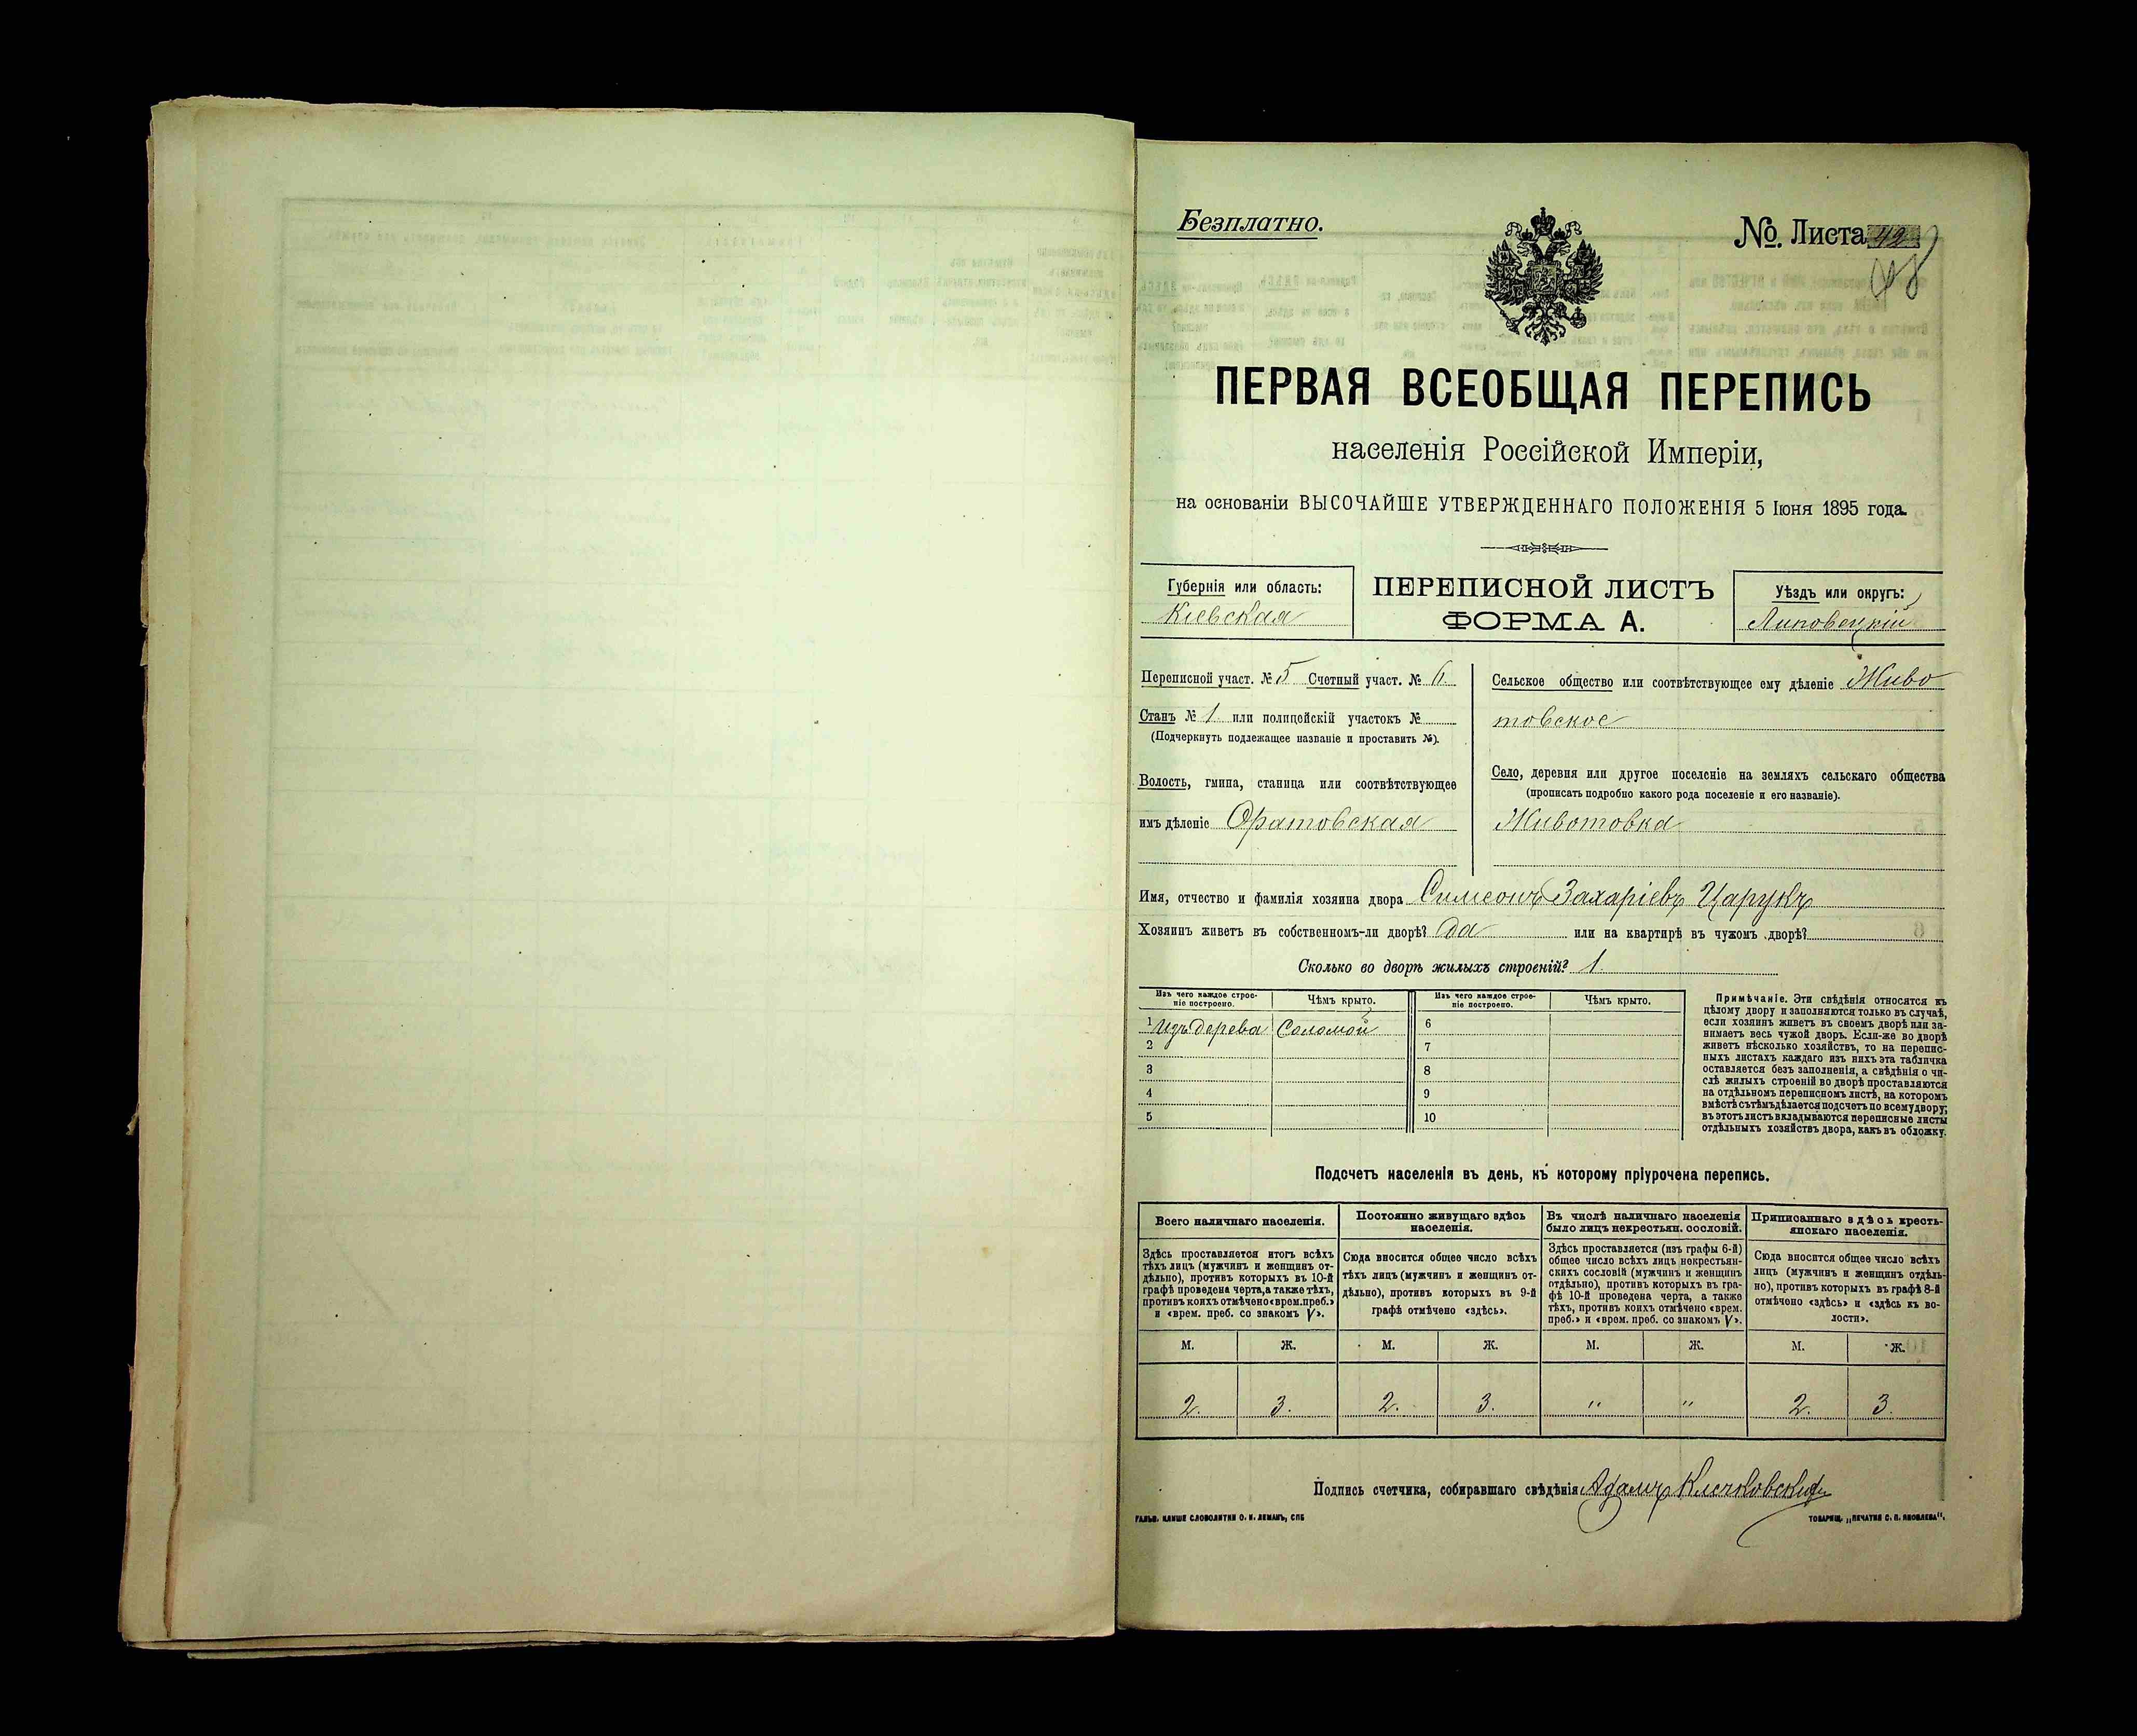 Безплатно.
№ Листа 42
ПЕРВАЯ ВСЕОБЩАЯ ПЕРЕПИСЬ
населенія Россійской Имперіи,
на основаніи ВЫСОЧАЙШЕ УТВЕРЖДЕННАГО ПОЛОЖЕНІЯ 5 Іюня 1895 года.
Губернія или область:
Кіевская
ПЕРЕПИСНОЙ ЛИСТЪ
ФОРМА А.
Уѣздъ или округъ:
Липовецкій
Переписной участ. № 5 Счетный участ. № 6.
Станъ № 1 или полицейскій участокъ №
(Подчеркнуть подлежащее названіе и проставить №).
Волость, гмина, станица или соотвѣтствующее
имъ дѣленіе Оратовская
Сельское общество или соотвѣтствующее ему дѣленіе Живо
товское
Село, деревня или другое поселеніе на земляхъ сельскаго общества
(прописать подробно какого рода поселеніе и его названіе).
Животовка
Имя, отчество и фамилія хозяина двора Симеонъ Захаріевъ Царукъ
Хозяинъ живетъ въ собственномъ-ли дворѣ? да или на квартирѣ въ чужомъ дворѣ?
Сколько во дворѣ жилыхъ строеній? 1.
Изъ чего каждое строе-
ніе построено.
Чѣмъ крыто.
Изъ чего каждое строе-
ніе построено.
Чѣмъ крыто.
1 Изъ дерева Соломой
2
3
4
5
6
7
8
9
10
Примѣчаніе. Эти свѣдѣнія относятся къ
цѣлому двору и заполняются только въ случаѣ,
если хозяинъ живетъ въ своемъ дворѣ или за-
нимаетъ весь чужой дворъ. Если-же во дворѣ
живетъ нѣсколько хозяйствъ, то на перепис-
ныхъ листахъ каждаго изъ нихъ эта табличка
оставляется безъ заполненія, а свѣдѣнія о чи-
слѣ жилыхъ строеній во дворѣ проставляются
на отдѣльномъ переписномъ листѣ, на которомъ
вмѣстѣ съ тѣмъ дѣлается подсчетъ по всему двору;
въ этотъ листъ вкладываются переписные листы
отдѣльныхъ хозяйствъ двора, какъ въ обложку.
Подсчетъ населенія въ день, къ которому пріурочена перепись.
Всего наличнаго населенія.
Здѣсь проставляется итогъ всѣхъ
тѣхъ лицъ (мужчинъ и женщинъ от-
дѣльно), противъ которыхъ въ 10-й
графѣ проведена черта, а также тѣхъ,
противъ коихъ отмѣчено «врем. преб.»
и «врем. преб. со знакомъ V».
Постоянно живущаго здѣсь
населенія.
Сюда вносится общее число всѣхъ
тѣхъ лицъ (мужчинъ и женщинъ от-
дѣльно), противъ которыхъ въ 9-й
графѣ отмѣчено «здѣсь».
Въ числѣ наличнаго населенія
было лицъ некрестьян. сословій.
Здѣсь проставляется (изъ графы 6-й)
общее число всѣхъ лицъ некрестьян-
скихъ сословій (мужчинъ и женщинъ
отдѣльно), противъ которыхъ въ гра-
фѣ 10-й проведена черта, а также
тѣхъ, противъ коихъ отмѣчено «врем.
преб.» и «врем. преб. со знакомъ V».
Приписаннаго здѣсь кресть-
янскаго населенія.
Сюда вносится общее число всѣхъ
лицъ (мужчинъ и женщинъ отдѣль-
но), противъ которыхъ въ графѣ 8-й
отмѣчено «здѣсь» и «здѣсь къ во-
лости».
М. Ж. М. Ж. М. Ж. М. Ж.
2. 3. 2. 3. " " 2. 3.
Подпись счетчика, собиравшаго свѣдѣнія Адамъ
ГАЛЬВ. КЛИШЕ СЛОВОЛИТНИ О. И. ЛЕМАНЪ, СПБ
ТОВАРИЩ. „ПЕЧАТНЯ С. П. ЯКОВЛЕВА“.